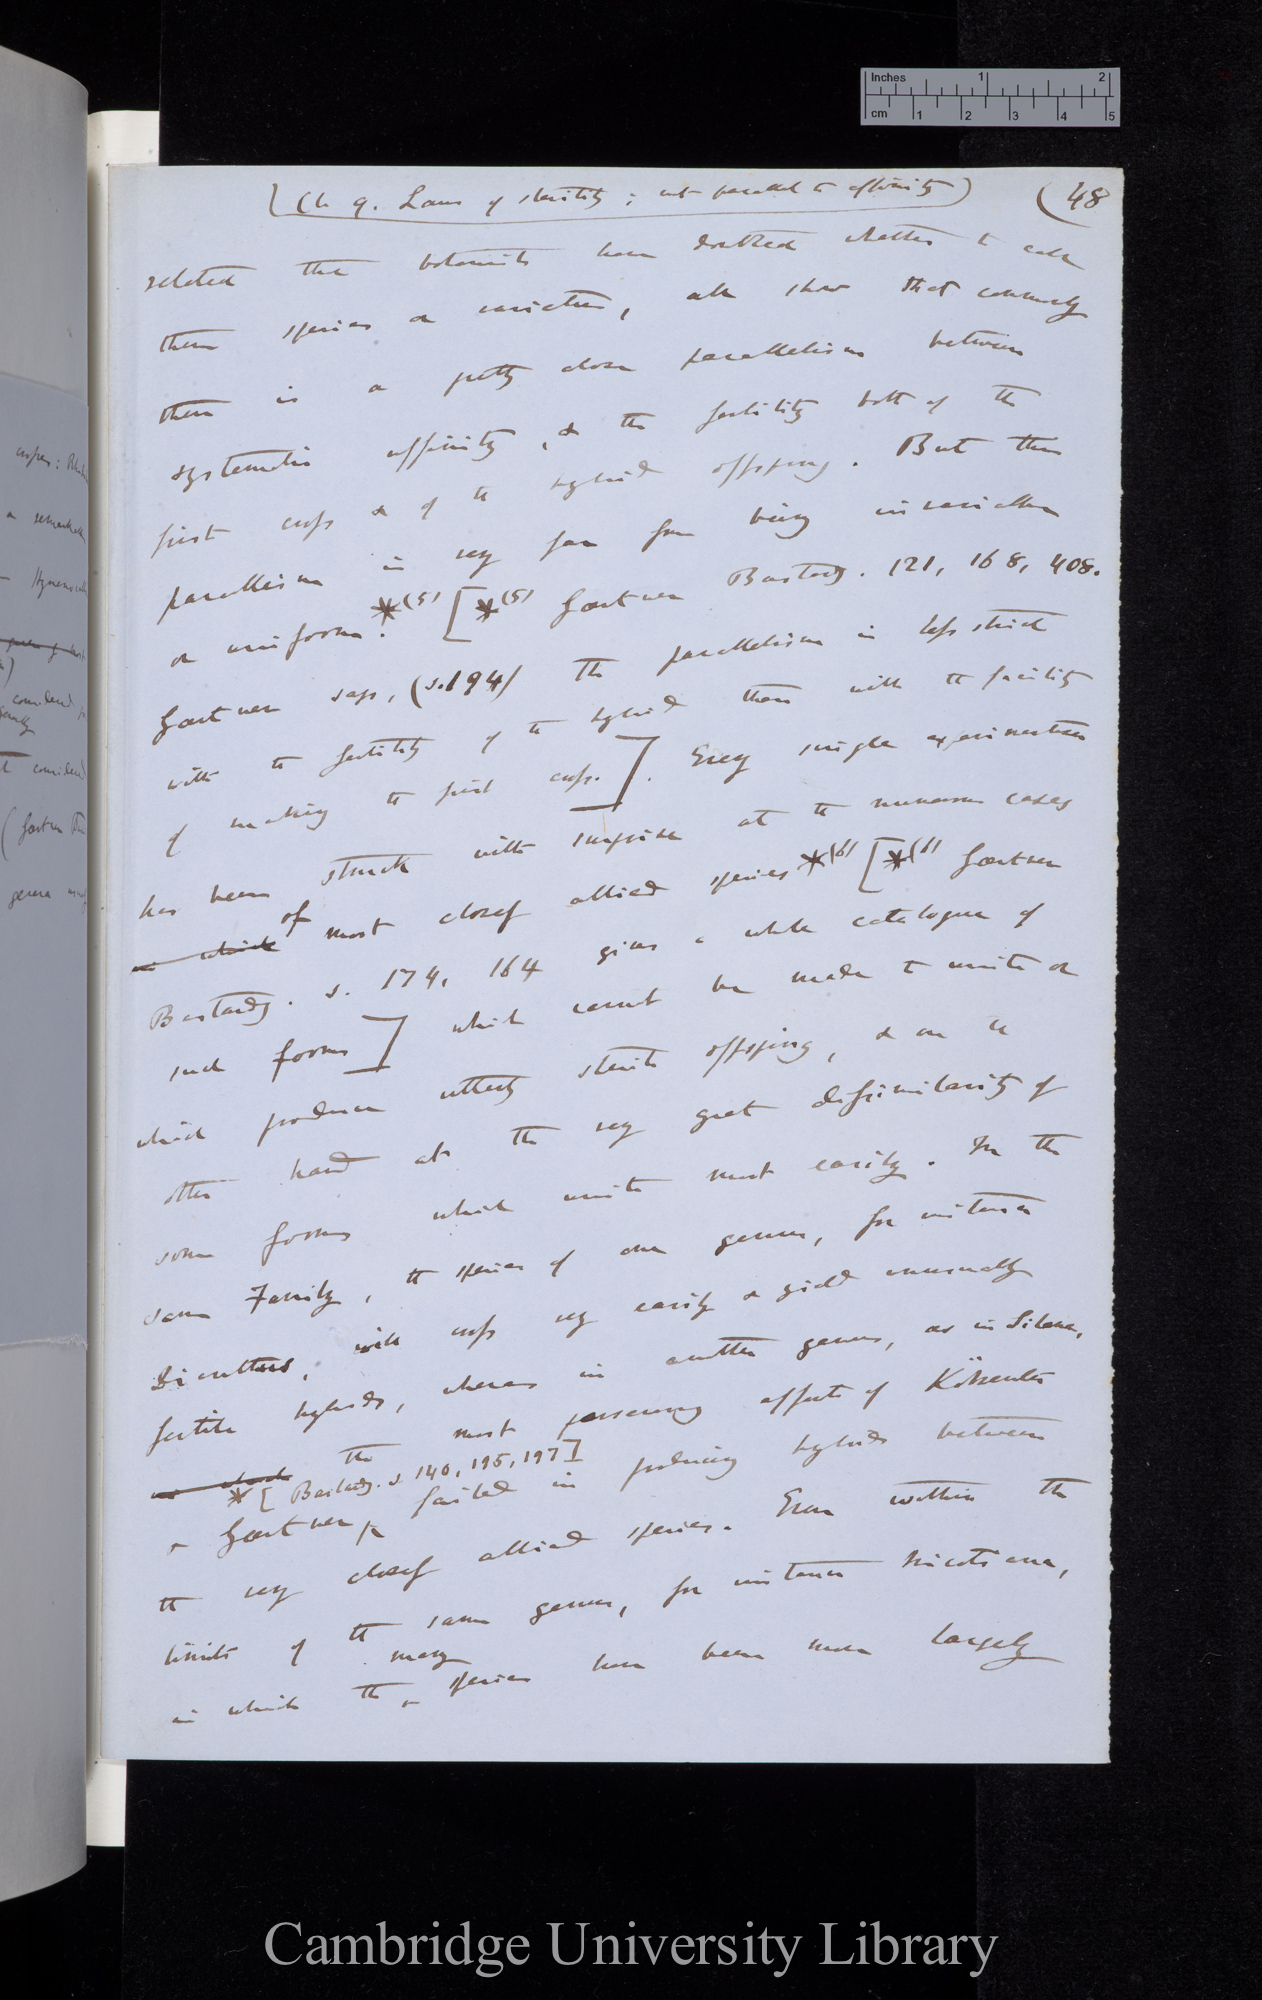 Inches 1 2
cm 1 2 3 4 5
(Ch 9. Laws of sterility; not parallel to affinity) (48
related that botanists have doubted whether to call
them species or varieties, all show that commonly
there is a pretty close parallelism between
systematic affinity, & the fertility both of the
first cross & of the hybrid offspring. But this
parallelism is very far from being invariable
or uniform.*(5) [*(5) Gærtner Bastardz. 121, 168, 408.
Gærtner says, (s.194) the parallelism is less strict
with the fertility of the hybrid than with the facility
of making the first cross.]. Every single experimentiser
has been struck with surprise at the numerous cases
of most closely allied species *(6) [*(6) Gærtner
Bastardz. s. 174, 164 gives a whole catalogue of
such forms] which cannot be made to unite or
which produce utterly sterile offspring, & on the
other hand at the very great dissimilarity of
some forms which unite most easily. In the
same Family, the species of one genus, for instance
Dianthus, will cross very easily & yield unusually
fertile hybrids, whereas in another genus, as in Silene,
the most persevering efforts of Kölreuter
* [Bastardz. s. 140, 195, 197]
& Gærtner failed in producing hybrids between
the very closely allied species. Even within the
limits of the same genus, for instance Nicotiana,
many
in which the species have been more largely
copse:
a remarkable
considered
(Gærtner
genera
Cambridge University Library